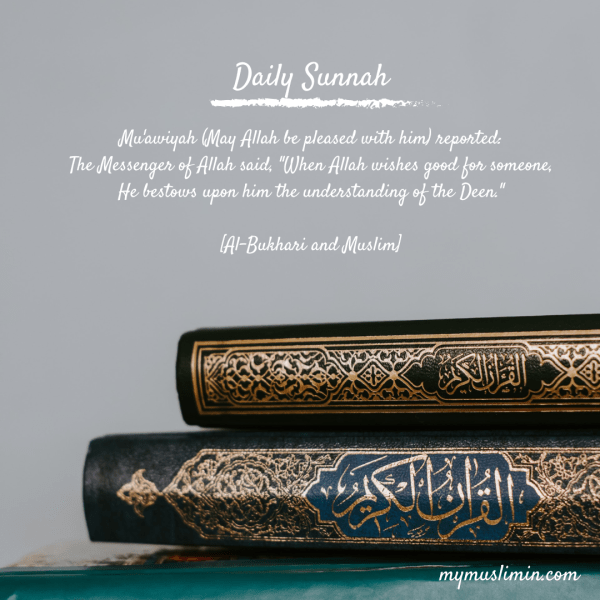 Daily Sunnah
Mu'awiyah (May Allah be pleased with him) reported:
The Messenger of Allah said, "When Allah wishes good for someone,
He bestows upon him the understanding of the Deen."
[Al-Bukhari and Muslim]
القرآن الكريم
القرآن الكريم
mymuslimin.com